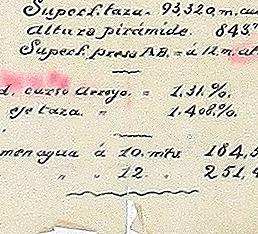 Superf. taza. - 93,320, m. cu
altura pirámide. 843,
Superf. presa AB. = á 12. m. al
d. curso arroyo. = 1.31.%.
eje taza. = 1.408%.
men agua á 10. mts. 184,5
" " 12. " 251,4